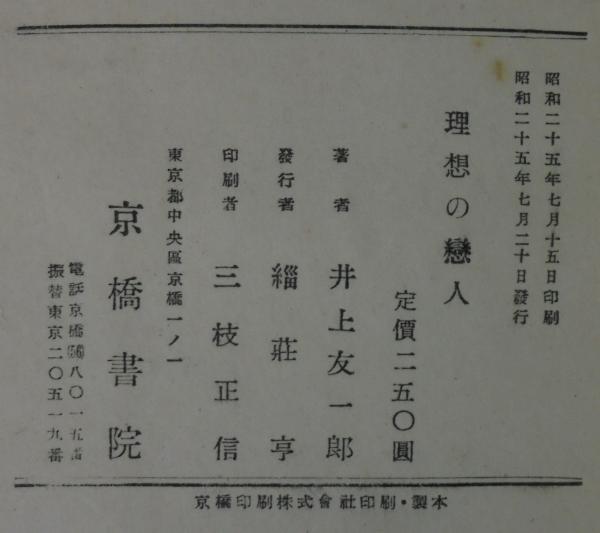 昭和二十五年七月十五日印刷
昭和二十五年七月二十日發行
理想の戀人
定價二五〇圓
著者 井上友一郎
發行者 緇莊亨
印刷者 三枝正信
東京都中央區京橋一ノ一
京橋書院
電話京橋八〇一五番
振替東京二〇五一九番
京橋印刷株式會社印刷・製本